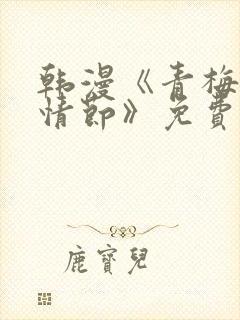 韩漫《青梅
情節》免費
鹿寶兒